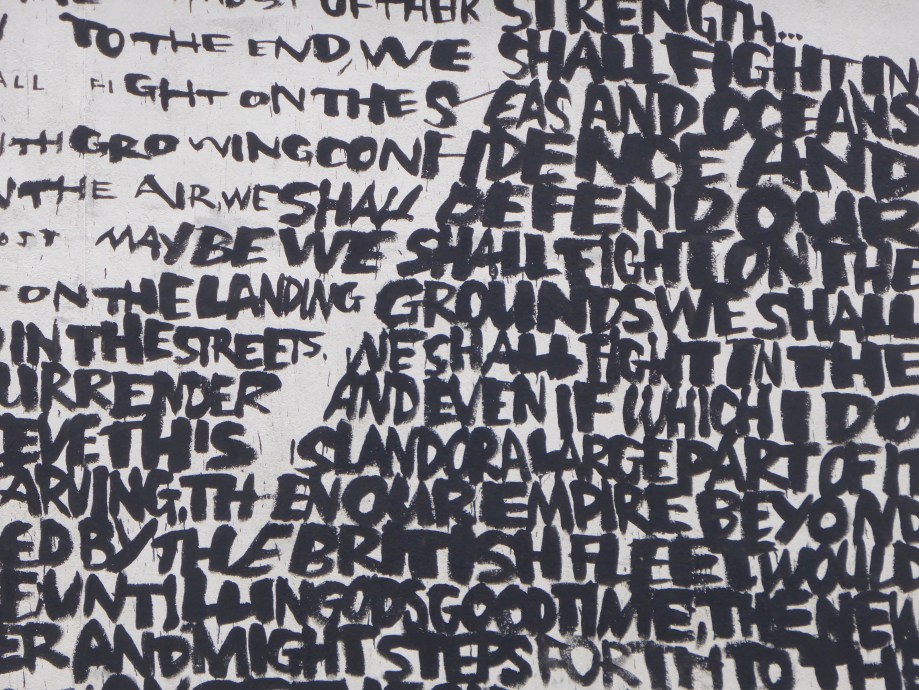 MOST OF THEIR STRENGTH...
TO THE END, WE SHALL FIGHT IN
ALL FIGHT ON THE SEAS AND OCEANS
ITH GROWING CONFIDENCE AND
N THE AIR, WE SHALL DEFEND OUR
OST MAY BE WE SHALL FIGHT ON THE
T ON THE LANDING GROUNDS WE SHALL
IN THE STREETS, WE SHALL FIGHT IN THE
URRENDER AND EVEN IF WHICH I DO
EVE THIS ISLAND OR A LARGE PART OF IT
ARVING, THEN OUR EMPIRE BEYOND
ED BY THE BRITISH FLEET WOULD
E UNTILL IN GODS GOOD TIME, THE NEW
ER AND MIGHT STEPS FORTH TO THE